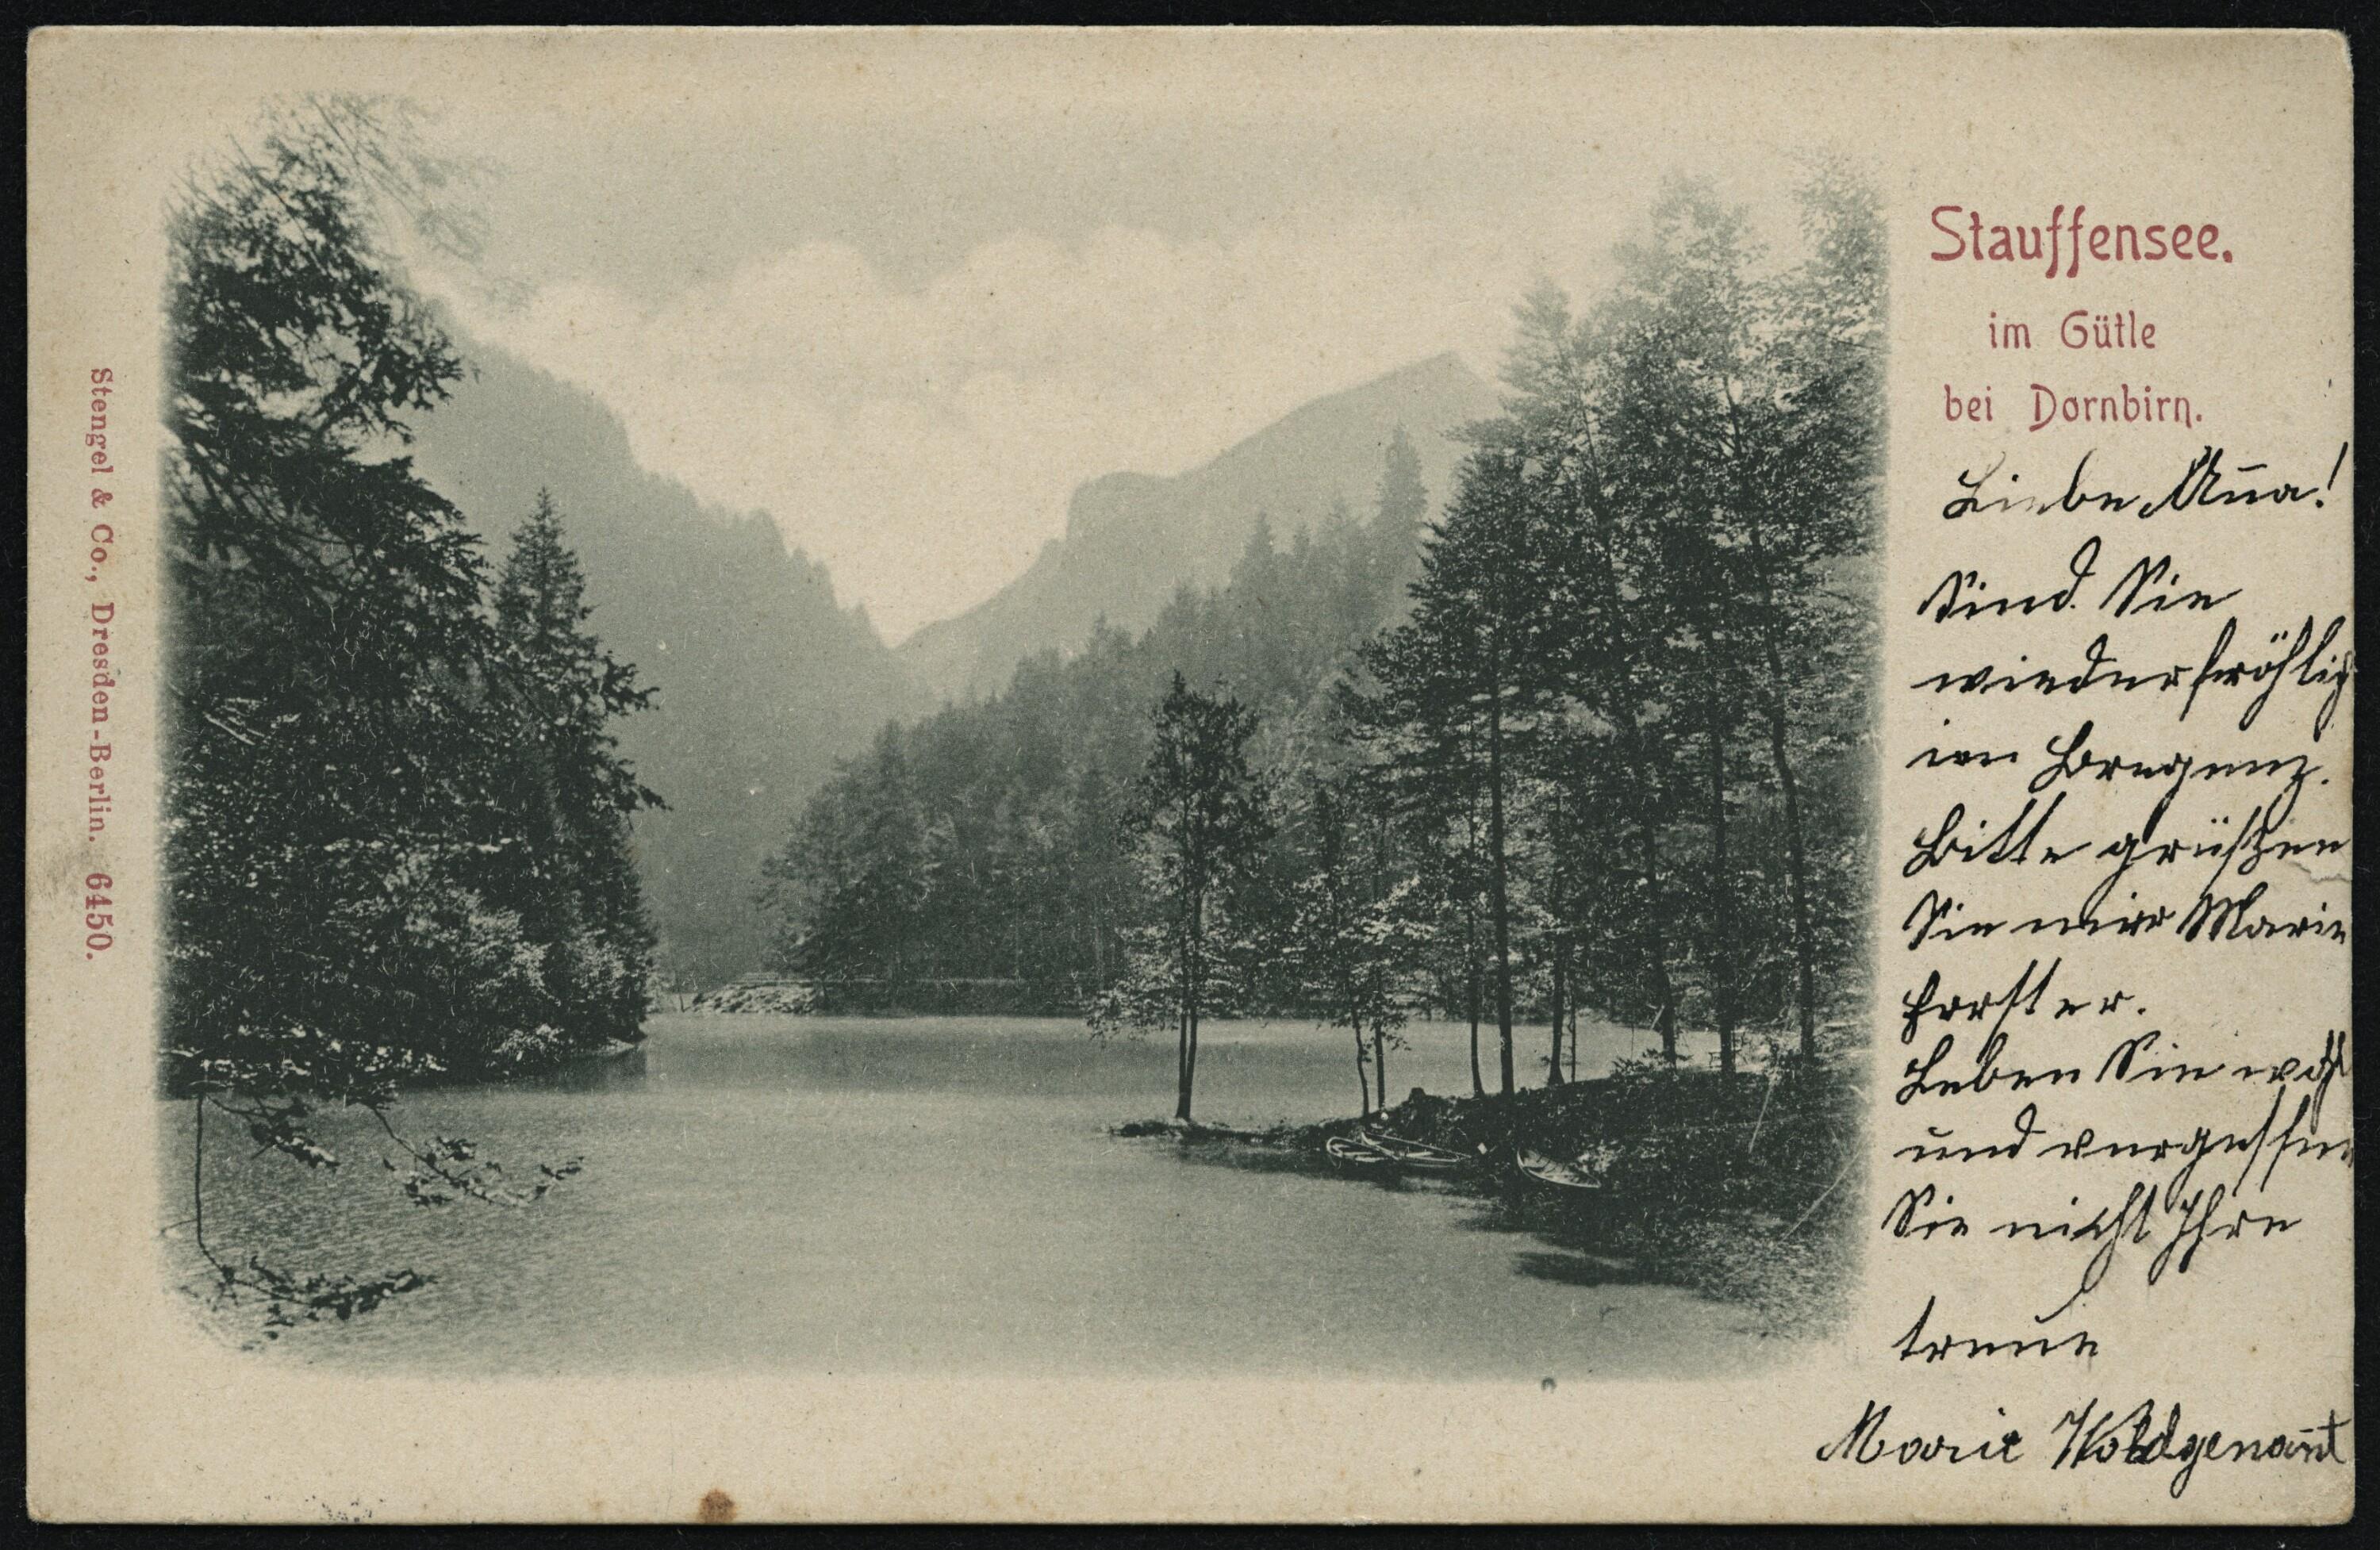 Stauffensee.
im Gütle
bei Dornbirn.
Liebe Anna!
Sind Sie
wieder fröhlich
in Bregenz.
Bitte grüßen
Sie mir Marie
Forster.
Leben Sie wohl
und vergessen
Sie nicht Ihre
treue
Marie
Stengel & Co., Dresden-Berlin. 6450.